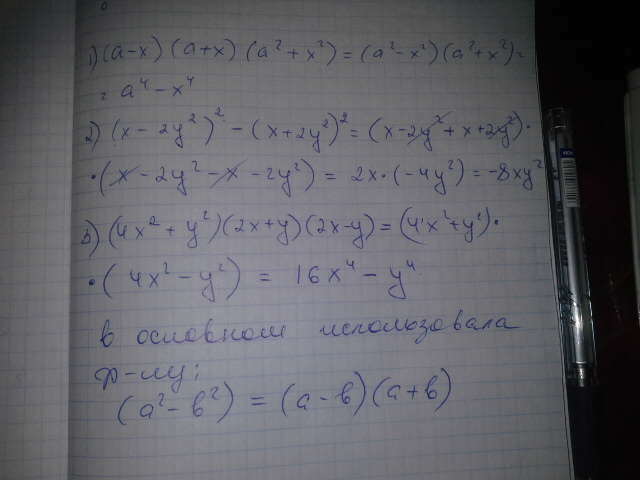 1) (a-x) (a+x) (a² + x²) = (a² - x²)(a² + x²) =
= a⁴ - x⁴
2) (x - 2y²)² - (x + 2y²)² = (x - 2y² + x + 2y²) ·
· (x - 2y² - x - 2y²) = 2x · (-4y²) = -8xy²
3) (4x² + y²)(2x+y)(2x-y) = (4x² + y²) ·
· (4x² - y²) = 16x⁴ - y⁴
в основном использовала
ф-лу:
(a² - b²) = (a - b)(a + b)